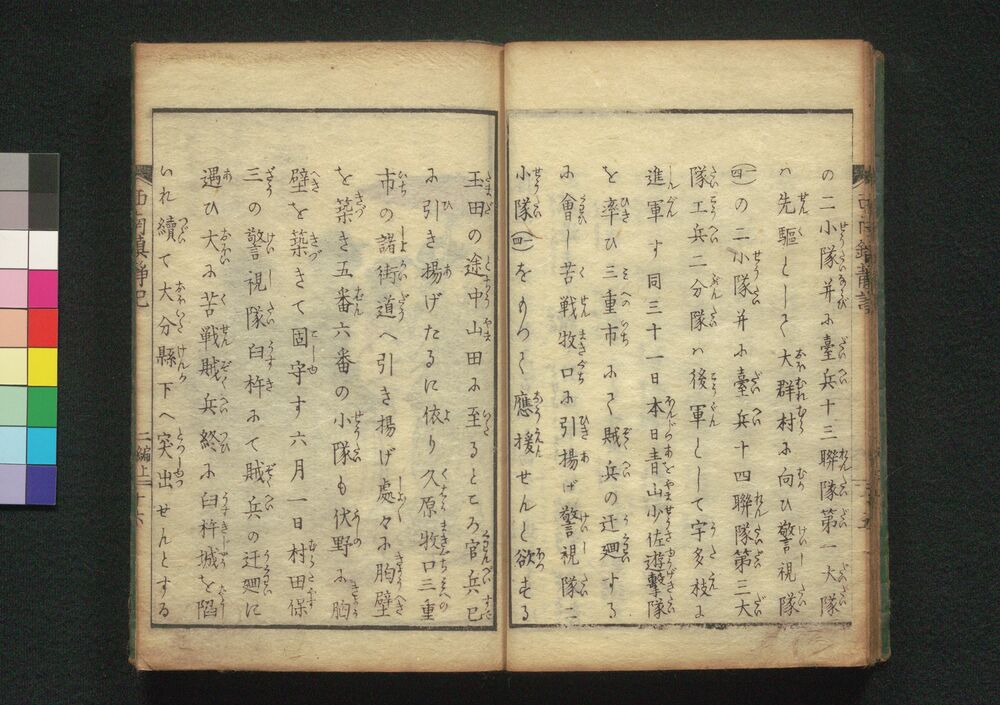 の二小隊并に臺兵十三聯隊第一大隊
ハ先驅として大群村に向ひ警視隊
(四)の二小隊并に臺兵十四聯隊第三大
隊工兵二分隊ハ後軍として宇多枝に
進軍す同三十一日本日青山少佐遊擊隊
を率ひ三重市にて賊兵の迂廻する
に會し苦戦牧口に引揚げ警視隊二
小隊(四)をもつて應援せんと欲する
玉田の途中山田に至るところ官兵已
に引き揚げたるに依り久原牧口三重
市の諸街道へ引き揚げ處々に胸壁
を築き五番六番の小隊も伏野に胸
壁を築きて固守す六月一日村田保
三の警視隊臼杵にて賊兵の迂廻に
遇ひ大に苦戦賊兵終に臼杵城を陷
いれ續て大分縣下へ突出せんとする
西南真静記
二編上
十六